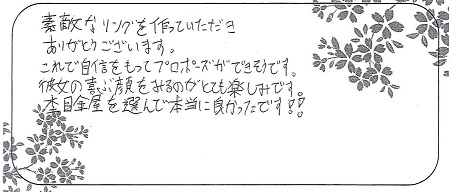 素敵なリングを作っていただき
ありがとうございます。
これで自信をもってプロポーズができそうです。
彼女の喜ぶ顔をみるのがとても楽しみです。
杢目金屋を選んで本当に良かったです!!